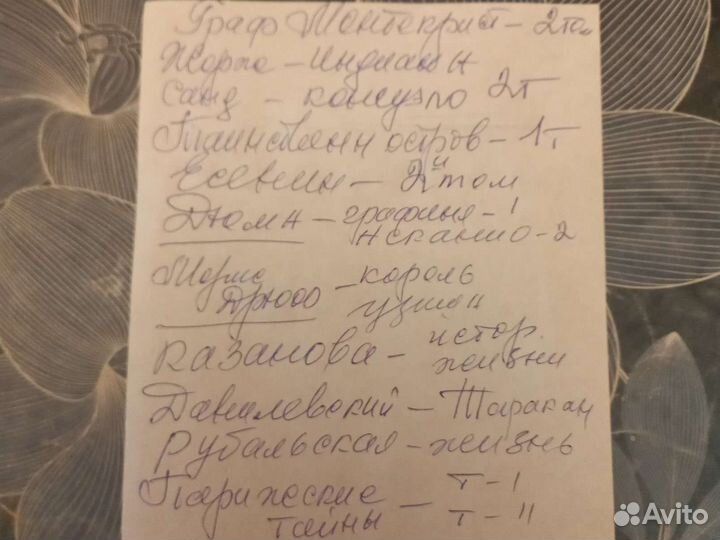 Граф Монтекрист - 2том
Жорж - Индиана
Санд - консуэло 2т
Таинственн остров - 1т
Есенин - 2й том
Дюма - графиня - 1
Асканио - 2
Морис - король
Дрюоо
Казанова - истор.
жизни
Данилевский - Таракан
Рубальская - жизнь
Парижские - т - I
тайны - т - II
Avito